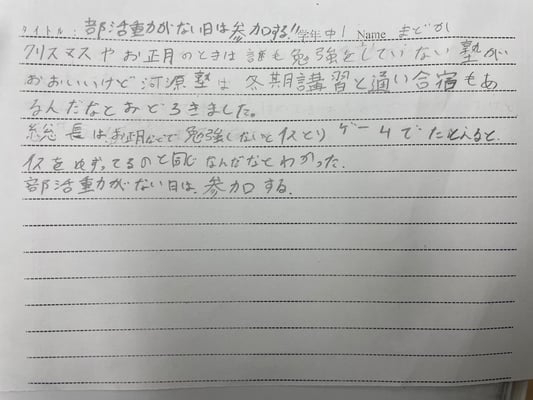 タイトル：部活動がない日は参加する!! 学年 中1 Name まどか
クリスマスやお正月のときは誰も勉強をしていない塾が
おおいいけど河源塾は冬期講習と通い合宿もあ
るんだなとおどろきました。
総長はお正月などで勉強しないとイスとりゲームでたとえると、
イスをゆずってるのと同じなんだなとわかった。
部活動がない日は、参加する。